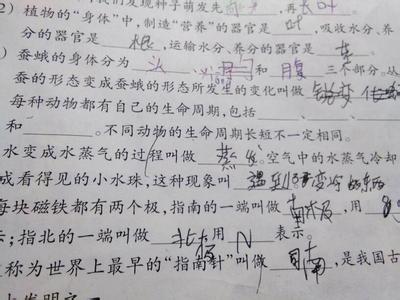 们发现种子萌发先 再长叶
2) 植物的"身体"中,制造"营养"的器官是 叶 ,吸收水分、养
分的器官是 根 ,运输水分、养分的器官是 茎 。
) 蚕蛾的身体分为 头 、 胸 和 腹 三个部分。从
蚕的形态变成蚕蛾的形态所发生的变化叫做
每种动物都有自己的生命周期,包括 、 、
和 。不同动物的生命周期长短不一定相同。
水变成水蒸气的过程叫做 蒸发 。空气中的水蒸气冷却
成看得见的小水珠,这种现象叫 遇到 变冷的东西
每块磁铁都有两个极,指南的一端叫做 南极 ,用
示;指北的一端叫做 北极 用 N 表示。
称为世界上最早的"指南针"叫做 司南 ,是我国古